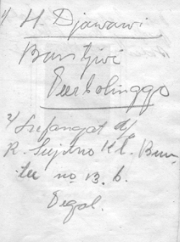 1/ H. Djawawi
Banjiwi
Probolinggo
2/ Supangat d/
R. Sujono Kl. Bun-
tu no. 13. b.
Tegal.